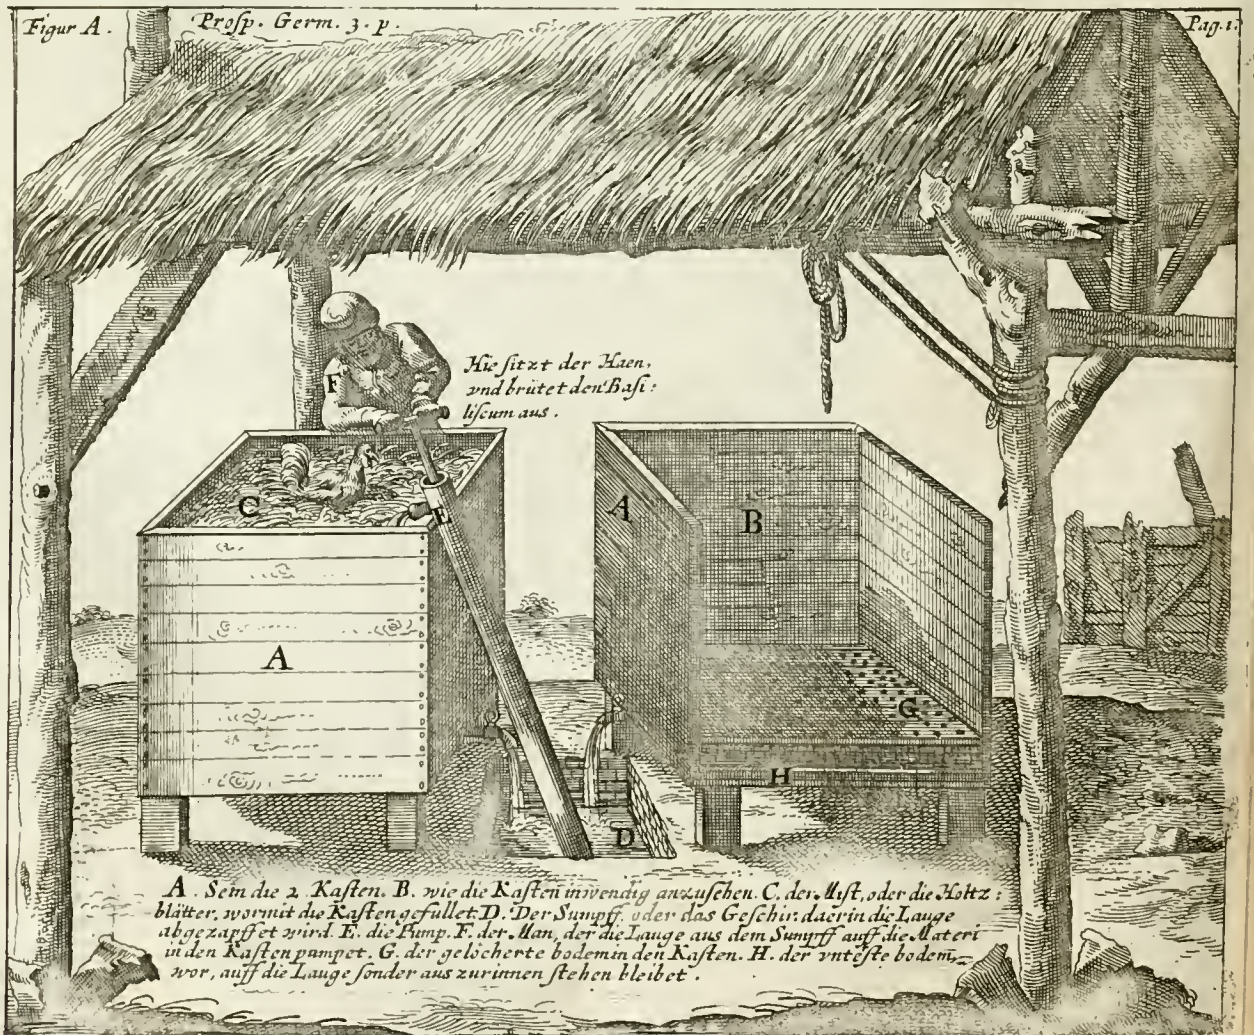 Figur A.
Prosp. Germ. 3. p.
Pag. 1.
Hie sitzt der Haen,
vnd brütet den Basi:
liscum aus.
F
C
E
A
A
B
G
H
D
A. Sein die 2. Kasten. B. wie die Kasten inwendig anzusehen. C. der Mist, oder die Holtz:
blätter, wormit die Kasten gefullet. D. Der Sumpff, oder das Geschir, daerin die Lauge
abgezapffet wird. E. die Pump. F. der Man, der die Lauge aus dem Sumpff auff die Materi
in den Kasten pumpet. G. der gelöcherte bodem in den Kasten. H. der vnteste bodem,
wor, auff die Lauge sonder aus zurinnen stehen bleibet.